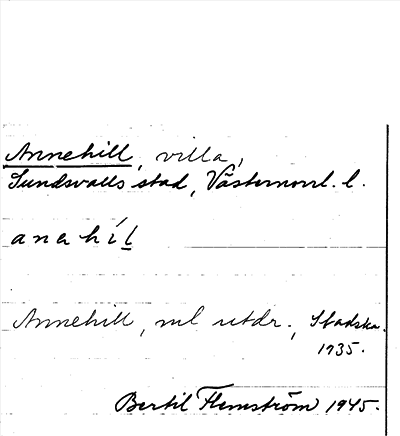 Annehill, villa,
Sundsvalls stad, Västernorrl. l.
anehíl
Annehill, nul utdr., Stadska.
1935.
Bertil Flemström 1945.